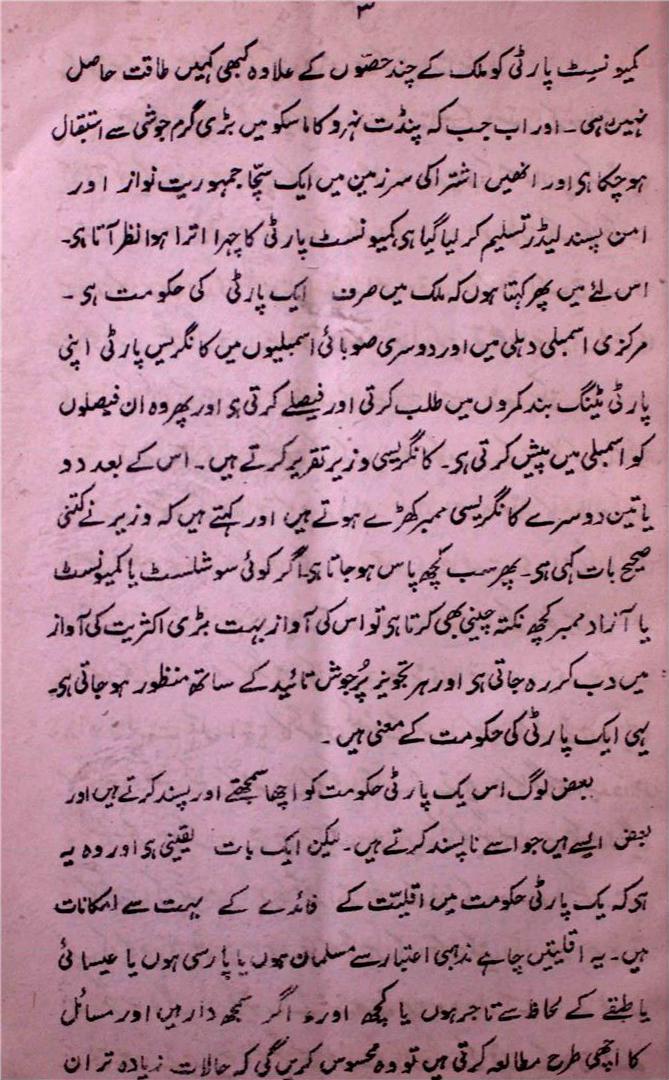 ۳
کمیونسٹ پارٹی کو ملک کے چند حصّوں کے علاوہ کبھی کہیں طاقت حاصل
نہیں رہی۔ اور اب جب کہ پنڈت نہرو کا ماسکو میں بڑی گرم جوشی سے استقبال
ہو چکا ہی اور انھیں اشتراکی سرزمین میں ایک سچّا جمہوریت نواز اور
امن پسند لیڈر تسلیم کر لیا گیا ہی کمیونسٹ پارٹی کا چہرا اترا ہوا نظر آتا ہی۔
اس لئے میں پھر کہتا ہوں کہ ملک میں صرف ایک پارٹی کی حکومت ہی۔
مرکزی اسمبلی دہلی میں اور دوسری صوبائی اسمبلیوں میں کانگریس پارٹی اپنی
پارٹی مٹینگ بند کمروں میں طلب کرتی اور فیصلے کرتی ہی اور پھر وہ ان فیصلوں
کو اسمبلی میں پیش کرتی ہی۔ کانگریسی وزیر تقریر کرتے ہیں۔ اس کے بعد دو
یا تین دوسرے کانگریسی ممبر کھڑے ہوتے ہیں اور کہتے ہیں کہ وزیر نے کتنی
صحیح بات کہی ہی۔ پھر سب کچھ پاس ہو جاتا ہی۔ اگر کوئی سوشلسٹ یا کمیونسٹ
یا آزاد ممبر کچھ نکتہ چینی بھی کرتا ہی تو اس کی آواز بہت بڑی اکثریت کی آواز
میں دب کر رہ جاتی ہی اور ہر تجویز پُرجوش تائید کے ساتھ منظور ہو جاتی ہی۔
یہی ایک پارٹی کی حکومت کے معنی ہیں۔
بعض لوگ اس یک پارٹی حکومت کو اچھا سمجھتے اور پسند کرتے ہیں اور
بعض ایسے ہیں جو اسے ناپسند کرتے ہیں۔ لیکن ایک بات یقینی ہی اور وہ یہ
ہی کہ یک پارٹی حکومت میں اقلیّت کے فائدے کے بہت سے امکانات
ہیں۔ یہ اقلیتیں چاہے مذہبی اعتبار سے مسلمان ہوں یا پارسی ہوں یا عیسائی
یا طبقے کے لحاظ سے تاجر ہوں یا کچھ اور، اگر سمجھ دار ہیں اور مسائل
کا اچھی طرح مطالعہ کرتی ہیں تو وہ محسوس کریں گی کہ حالات زیادہ تر ان